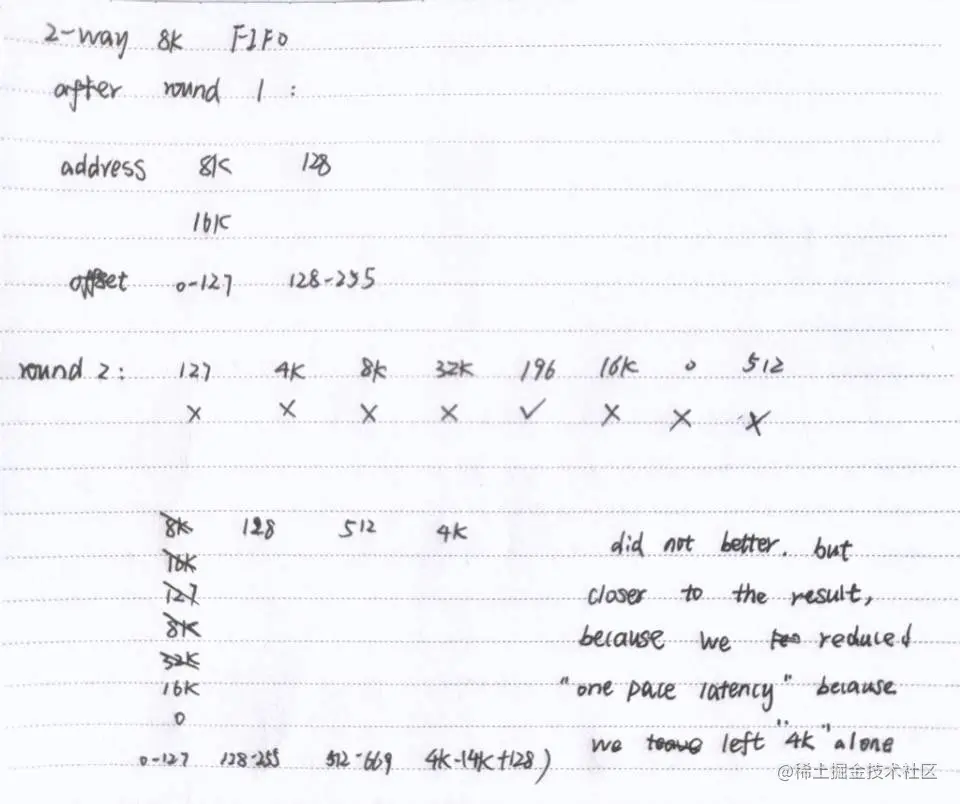 2-way 8K FIFO
after round 1 :
address 8K 128
16K
offset 0-127 128-255
round 2 : 127 4K 8K 32K 196 16K 0 512
× × × × ✓ × × ×
8K 128 512 4K
16K
127
8K
32K
16K
0
0-127 128-255 512-669 4K-14K+128)
did not better. but
closer to the result,
because we reduced
"one pace latency" because
we left "4K" alone
@稀土掘金技术社区